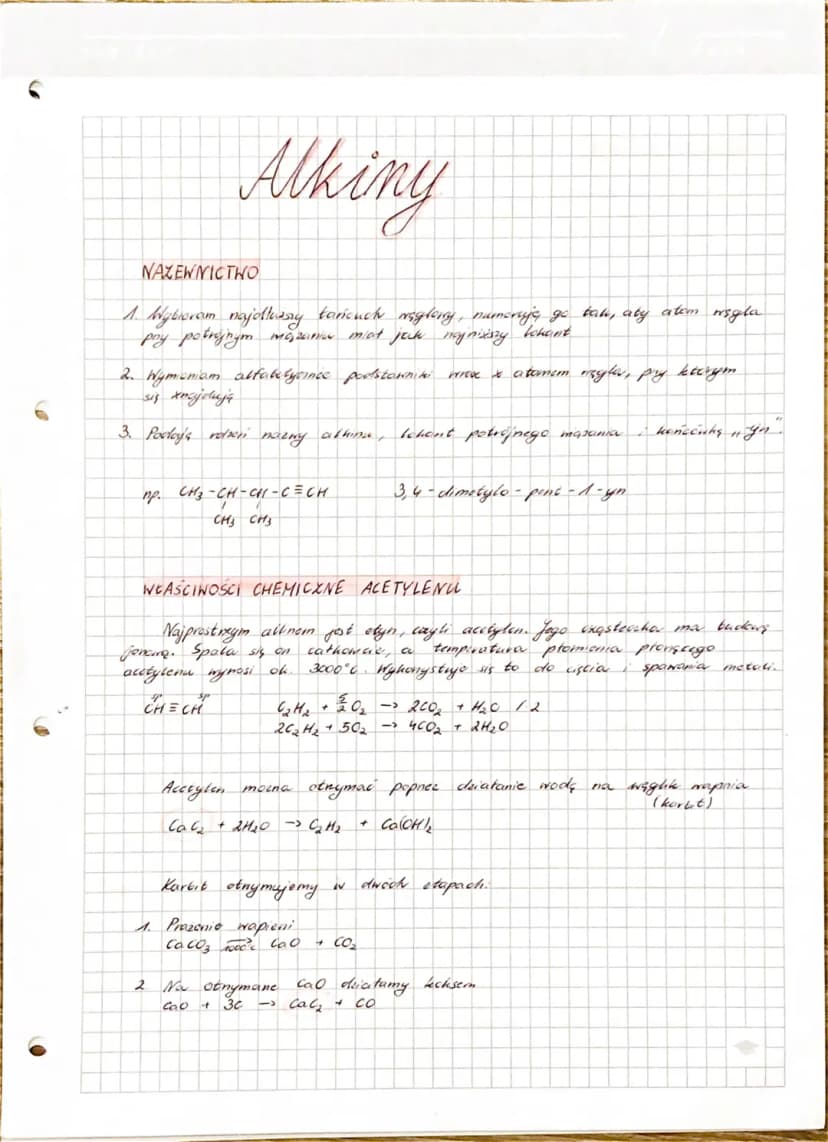 Alkiny
NAZEWNICTWO
1. Wybieram najdłuższy łańcuch węglowy, numeruję go tak, aby atom węgla
przy potrójnym wiązaniu miał jak najniższy lokant
2. Wymieniam alfabetycznie podstawniki wraz z atomem węgla, przy którym
się znajdują
3. Podaję rdzeń nazwy alkinu, lokant potrójnego wiązania i końcówkę „yn".
np. CH₃-CH-CH-C≡CH 3,4-dimetylo-pent-1-yn
CH₃ CH₃
WŁAŚCIWOŚCI CHEMICZNE ACETYLENU
Najprostszym alkinem jest etyn, czyli acetylen. Jego cząsteczka ma budowę
Spala się on całkowicie, a temperatura płomienia płonącego
acetylenu wynosi ok. 3000°C. Wykorzystuje się to do cięcia i spawania metali.
sp sp
CH≡CH C₂H₂ + 5/2 O₂ → 2CO₂ + H₂O / 2
2C₂H₂ + 5O₂ → 4CO₂ + 2H₂O
Acetylen można otrzymać poprzez działanie wodą na węglik wapnia
(karbit)
CaC₂ + 2H₂O → C₂H₂ + Ca(OH)₂
Karbit otrzymujemy w dwóch etapach:
1. Prażenie wapieni
CaCO₃ →1000°C CaO + CO₂
2 Na otrzymane CaO działamy koksem
CaO + 3C → CaC₂ + CO